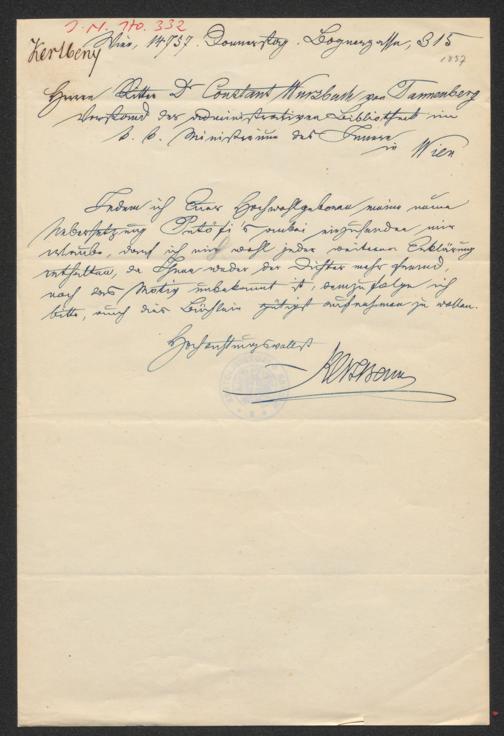 I. N. No. 332
Kertbeny
Wien, 14 737. Donnerstag. Bognergasse, 315
1857
Herrn Ritter Dr Constant Wurzbach von Tannenberg
Vorstand der administrativen Bibliothek im
k. k. Ministerium des Innern
in Wien
Indem ich Euer Hochwohlgeboren meine neue
Uebersetzung Petőfi's anbei einzusenden mir
erlaube, darf ich mich wohl jeder weiteren Erklärung
enthalten, da Ihnen weder der Dichter mehr fremd,
noch das Motiv unbekannt ist, demzufolge ich
bitte, auch dies Büchlein gütigst aufnehmen zu wollen.
Hochachtungsvollst
Kertbeny